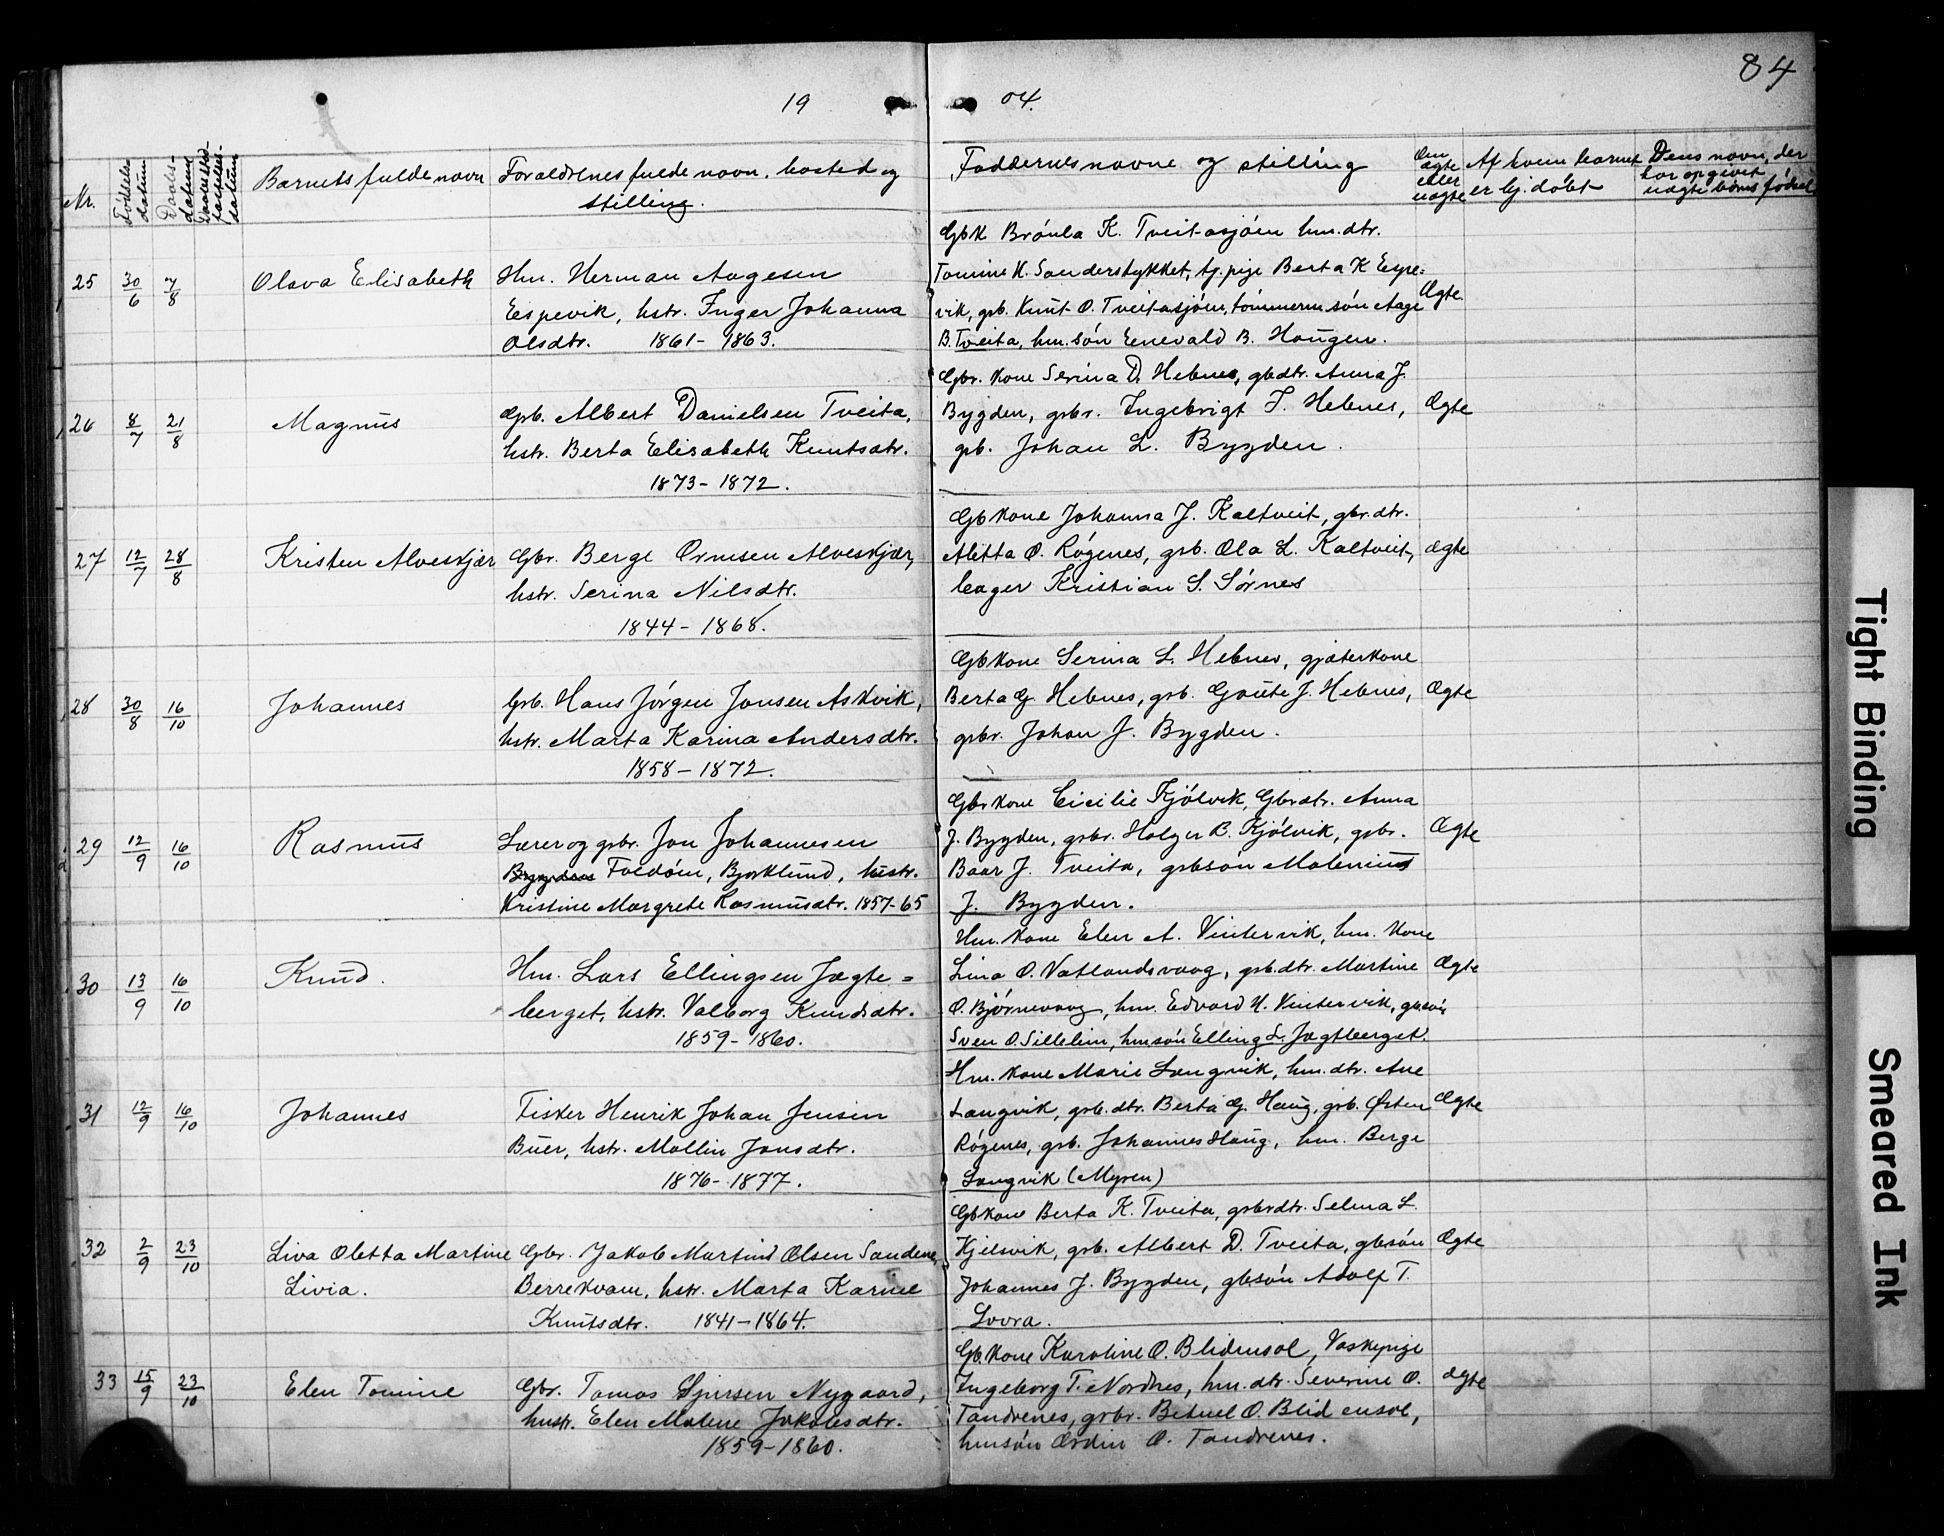 84
19 04.
Nr.
Fødsels-
datum
Daabs-
datum
Barnets fulde navn
Forældrenes fulde navn, bosted og
stilling.
Faddernes navne og stilling
Om
ægte
eller
uægte
Af hvem barnet
er hj. døbt
Dens navn, der
har opgivet
uægte børns fødsel
25
30/6
7/8
Olava Elisabeth
Hm. Herman Aagesen
Espevik, hstr. Inger Johanna
Olsdtr. 1861- 1863.
Gbk Brønla K. Tveitasjøen hm.dtr.
Tomine H. Sanderstykket, tj. pige Berta K Espe-
vik, gsb. Knut O. Tveitasjøen, tømmerm. søn Aage
B. Tveita, hm. søn Enevald B. Haugen.
Ægte.
26
8/7
21/8
Magnus
Gsb. Albert Danielsen Tveita,
hstr. Berta Elisabeth Knutsdtr.
1873- 1872.
Gbr. kone Serina D. Hebnes, gbdtr. Anna J.
Bygden, gsbr. Ingebrigt J. Hebnes,
gb. Johan L. Bygden.
Ægte
27
12/7
28/8
Kristen Alveskjær
Gbr. Berge Ormsen Alveskjær,
hstr. Serina Nilsdtr.
1844- 1868.
Gbkone Johanna J. Kaltveit, gbr.dtr.
Aletta O. Røgenes, gsb. Ola L. Kaltveit,
bager Kristian S. Sørnes
Ægte
28
30/8
16/10
Johannes
Gsb. Hans Jørgen Jonsen Askvik,
hstr. Marta Karina Andersdtr.
1858- 1872.
Gbkone Serina L. Hebnes, gjæterkone
Berta G. Hebnes, gsb. Gaute J. Hebnes,
gsbr. Johan J. Bygden.
Ægte
29
12/9
16/10
Rasmus
Lærer og gsbr. Jon Johannesen
Bygdnes Foldøen, Bjørklund, hustr.
Kristine Margrete Rasmusdtr. 1857-65
Gbrkone Cicilie Kjølvik, Gbrdtr. Anna
J. Bygden, gsbr. Holger B. Kjølvik, gsbr.
Baar J. Tveita, gsbsøn Malenius
J. Bygden.
Ægte
30
13/9
16/10
Knud.
Hm. Lars Ellingsen Jægte-
berget, hstr. Valborg Knudsdtr.
1859- 1860.
Hm. kone Elen A. Vintervik, hm. kone
Lina O. Vatlandsvaag, gsb.dtr. Martine
O. Bjørnevaag, hm. Edvard H. Vintervik, gbsøn
Sven O. Sillelim, hmsøn Elling L. Jægtberget.
Ægte
31
12/9
16/10
Johannes
Fisker Henrik Johan Jensen
Buer, hstr. Mallin Jonsdtr.
1876- 1877.
Hm. kone Marie Langvik, hm. dtr. Ane
Langvik, gsb. dtr. Berta G. Haug, gsb. Østen
Røgenes, gsb. Johannes Haug, hm. Berge
Langvik (Myren)
Ægte
32
2/9
23/10
Liva Oletta Martine
Livia.
Gbr. Jakob Martinus Olsen Sandene,
Berrekvam, hstr. Marta Karine
Knutsdtr. 1841- 1864.
Gbkone Berta K. Tveita, gsbrdtr. Selma L.
Kjelsvik, gsb. Albert D. Tveita, gbsøn
Johannes J. Bygden, gbsøn Adolf T.
Lovra.
Ægte
33
15/9
23/10
Elen Tomine
Gbr. Tomas Sjursen Nygaard,
hustr. Elen Malene Jakobsdtr.
1859- 1860.
Gbkone Karoline O. Blidensol, Vaskepige
Ingeborg T. Nordnes, hm. dtr. Severine O.
Tandrenes, gsbr. Betuel O. Blidensol,
hmsøn Ordin O. Tandrenes.
ægte
Tight Binding
Smeared Ink